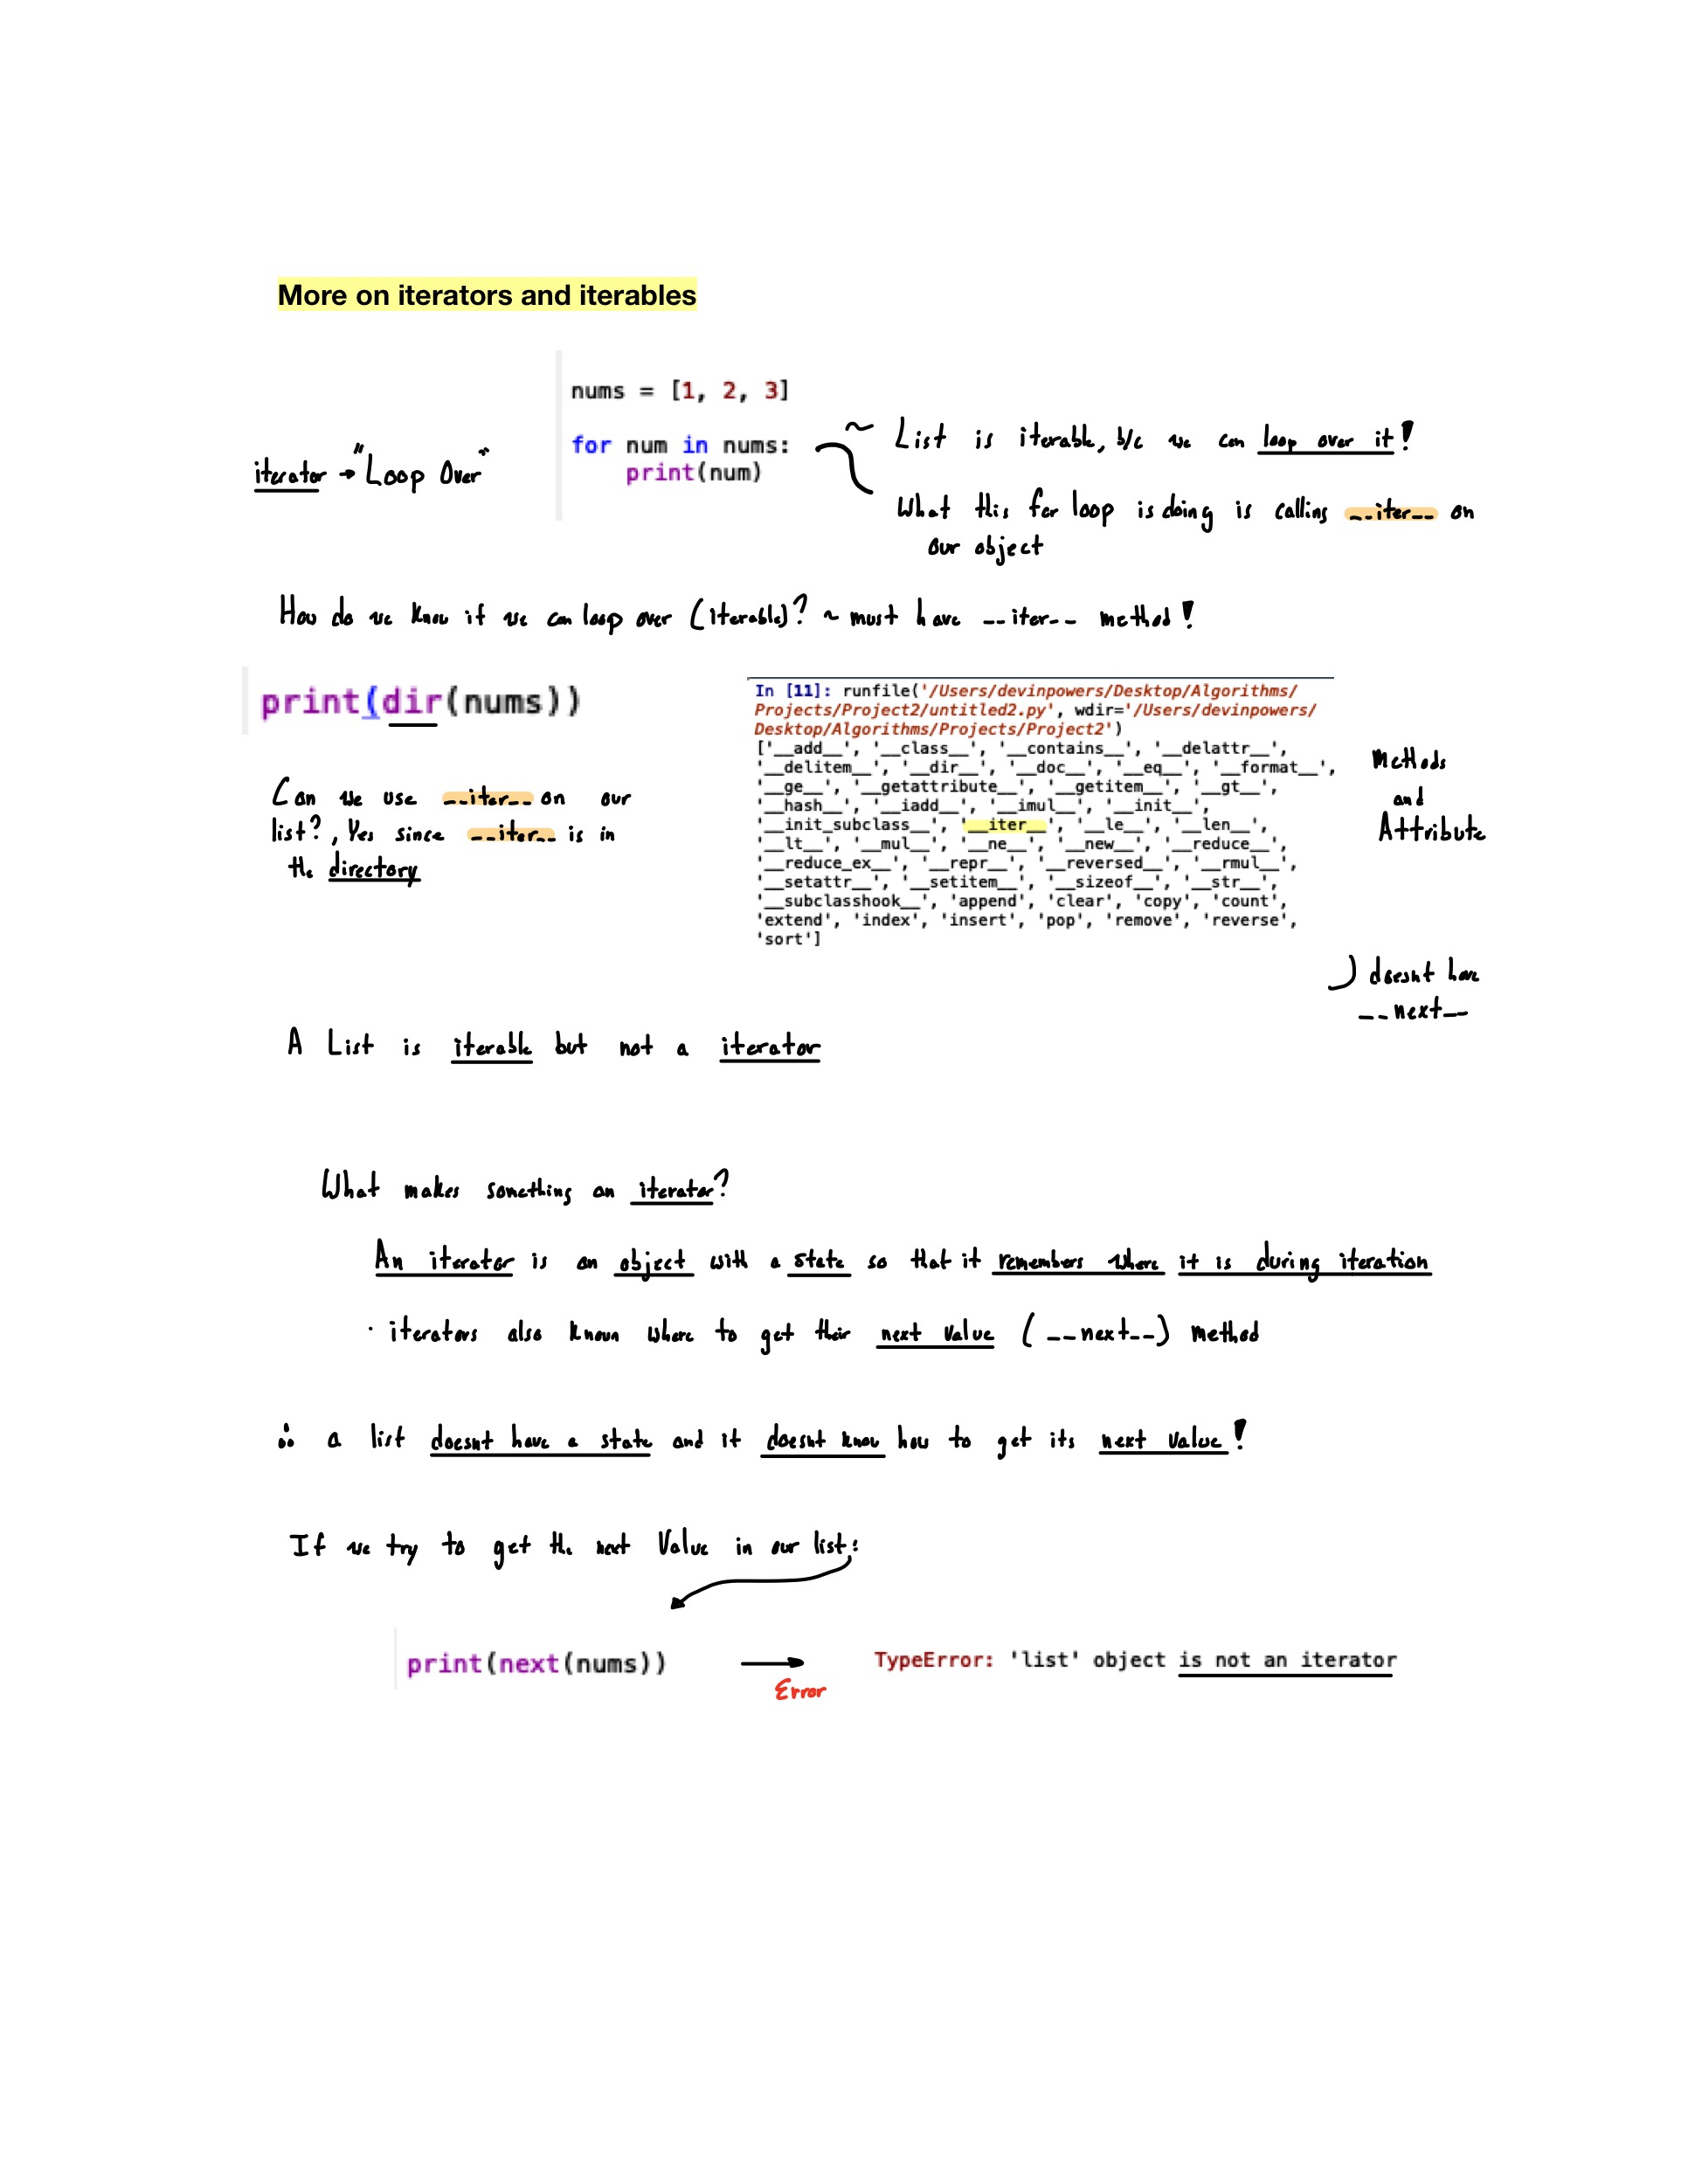 More on iterators and iterables
nums = [1, 2, 3]
for num in nums:
print(num)
iterator → "Loop Over"
~ List is iterable, b/c we can loop over it!
What this for loop is doing is calling __iter__ on
our object
How do we know if we can loop over (iterable)? ~ must have __iter__ method!
print(dir(nums))
In [11]: runfile('/Users/devinpowers/Desktop/Algorithms/
Projects/Project2/untitled2.py', wdir='/Users/devinpowers/
Desktop/Algorithms/Projects/Project2')
['__add__', '__class__', '__contains__', '__delattr__',
'__delitem__', '__dir__', '__doc__', '__eq__', '__format__',
'__ge__', '__getattribute__', '__getitem__', '__gt__',
'__hash__', '__iadd__', '__imul__', '__init__',
'__init_subclass__', '__iter__', '__le__', '__len__',
'__lt__', '__mul__', '__ne__', '__new__', '__reduce__',
'__reduce_ex__', '__repr__', '__reversed__', '__rmul__',
'__setattr__', '__setitem__', '__sizeof__', '__str__',
'__subclasshook__', 'append', 'clear', 'copy', 'count',
'extend', 'index', 'insert', 'pop', 'remove', 'reverse',
'sort']
Methods
and
Attribute
Can we use __iter__ on our
list?, Yes since __iter__ is in
the directory
doesnt have
__next__
A List is iterable but not a iterator
What makes something an iterator?
An iterator is an object with a state so that it remembers where it is during iteration
· iterators also known where to get their next value (__next__) method
∴ a list doesnt have a state and it doesnt know how to get its next value!
If we try to get the next Value in our list:
print(next(nums))
Error
TypeError: 'list' object is not an iterator